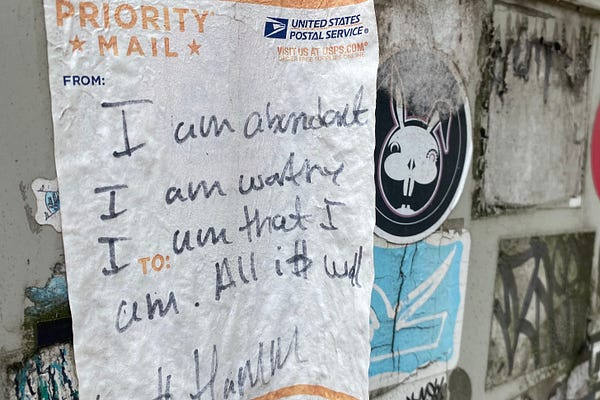 PRIORITY
★ MAIL ★
UNITED STATES
POSTAL SERVICE®
VISIT US AT USPS.COM®
ORDER FREE SUPPLIES ONLINE
FROM:
I am abundant
I am
I am that I
TO:
am. All is well